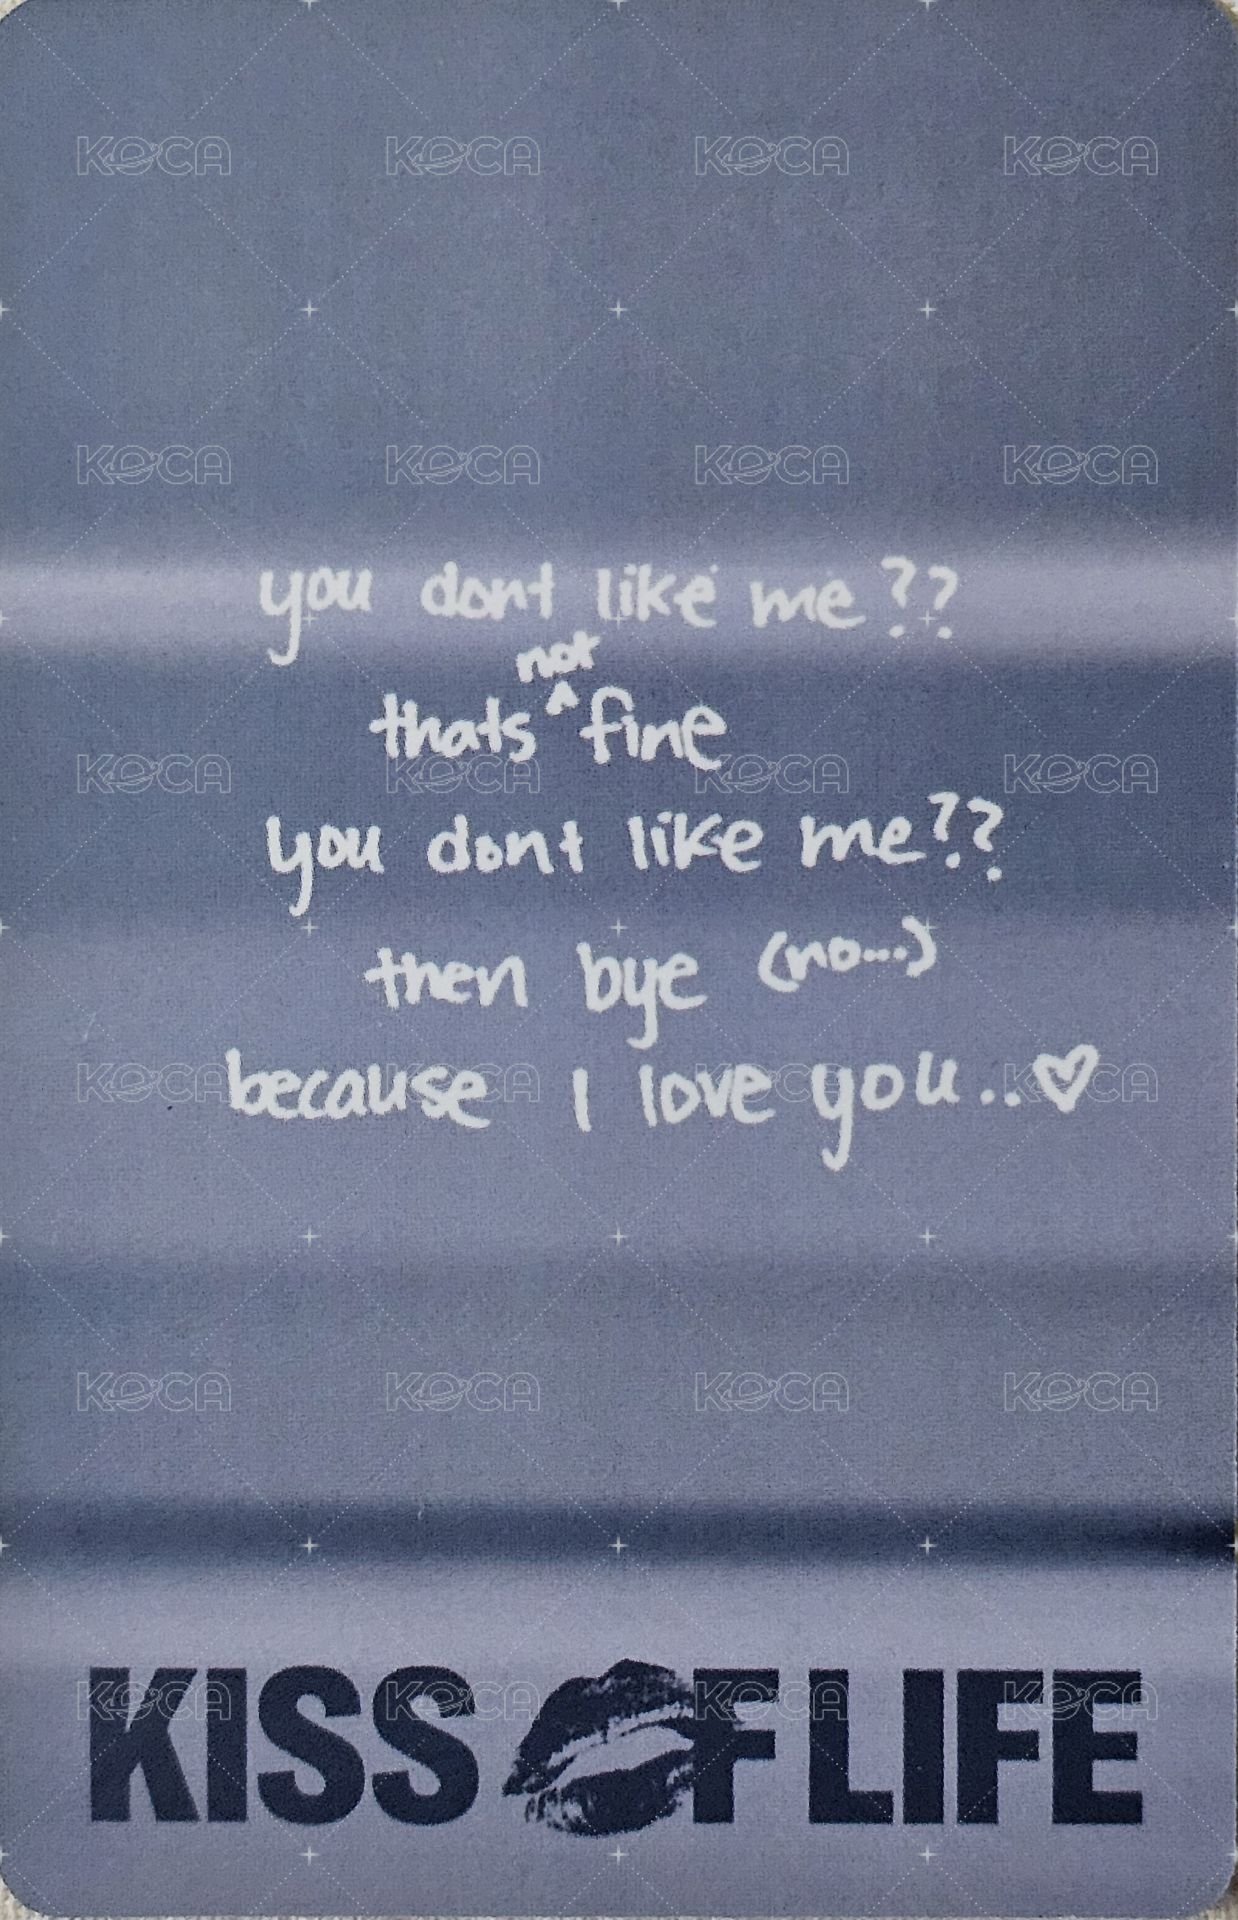 KOCA KOCA KOCA KOCA
KOCA KOCA KOCA KOCA
you dont like me??
not
thats ^ fine
KOCA KOCA KOCA KOCA
you dont like me??
then bye (no...)
because I love you..♡
KOCA KOCA KOCA KOCA
KOCA KOCA KOCA KOCA
KISS OF LIFE
KOCA KOCA KOCA KOCA